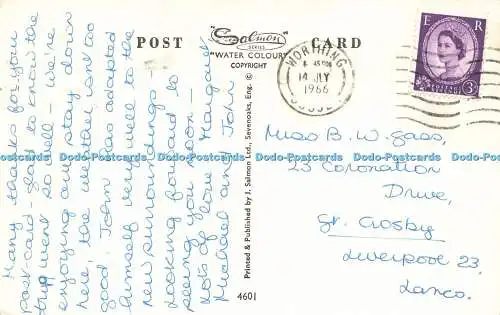 POST CARD
Salmon
SERIES
"WATER COLOUR"
COPYRIGHT
WORTHING
14 JLY
1966
SUSSEX
E R
POSTAGE
REVENUE
3D
Many thanks for your
post-card - glad to know the
trip went so well - we're
enjoying our stay down
here, the weather isn't too
good. John has adapted
himself very well to the
new surroundings -
Looking forward to
seeing you soon -
Lots of love Margaret
Michael and John
Printed & Published by J. Salmon Ltd., Sevenoaks, Eng. ©
4601
Miss B. W. Gass,
23 Coronation
Drive,
Gt. Crosby
Liverpool 23,
Lancs.
Dodo-Postcards Dodo-Postcards Dodo-Postcards Dodo-Postcards Dodo-Postcards